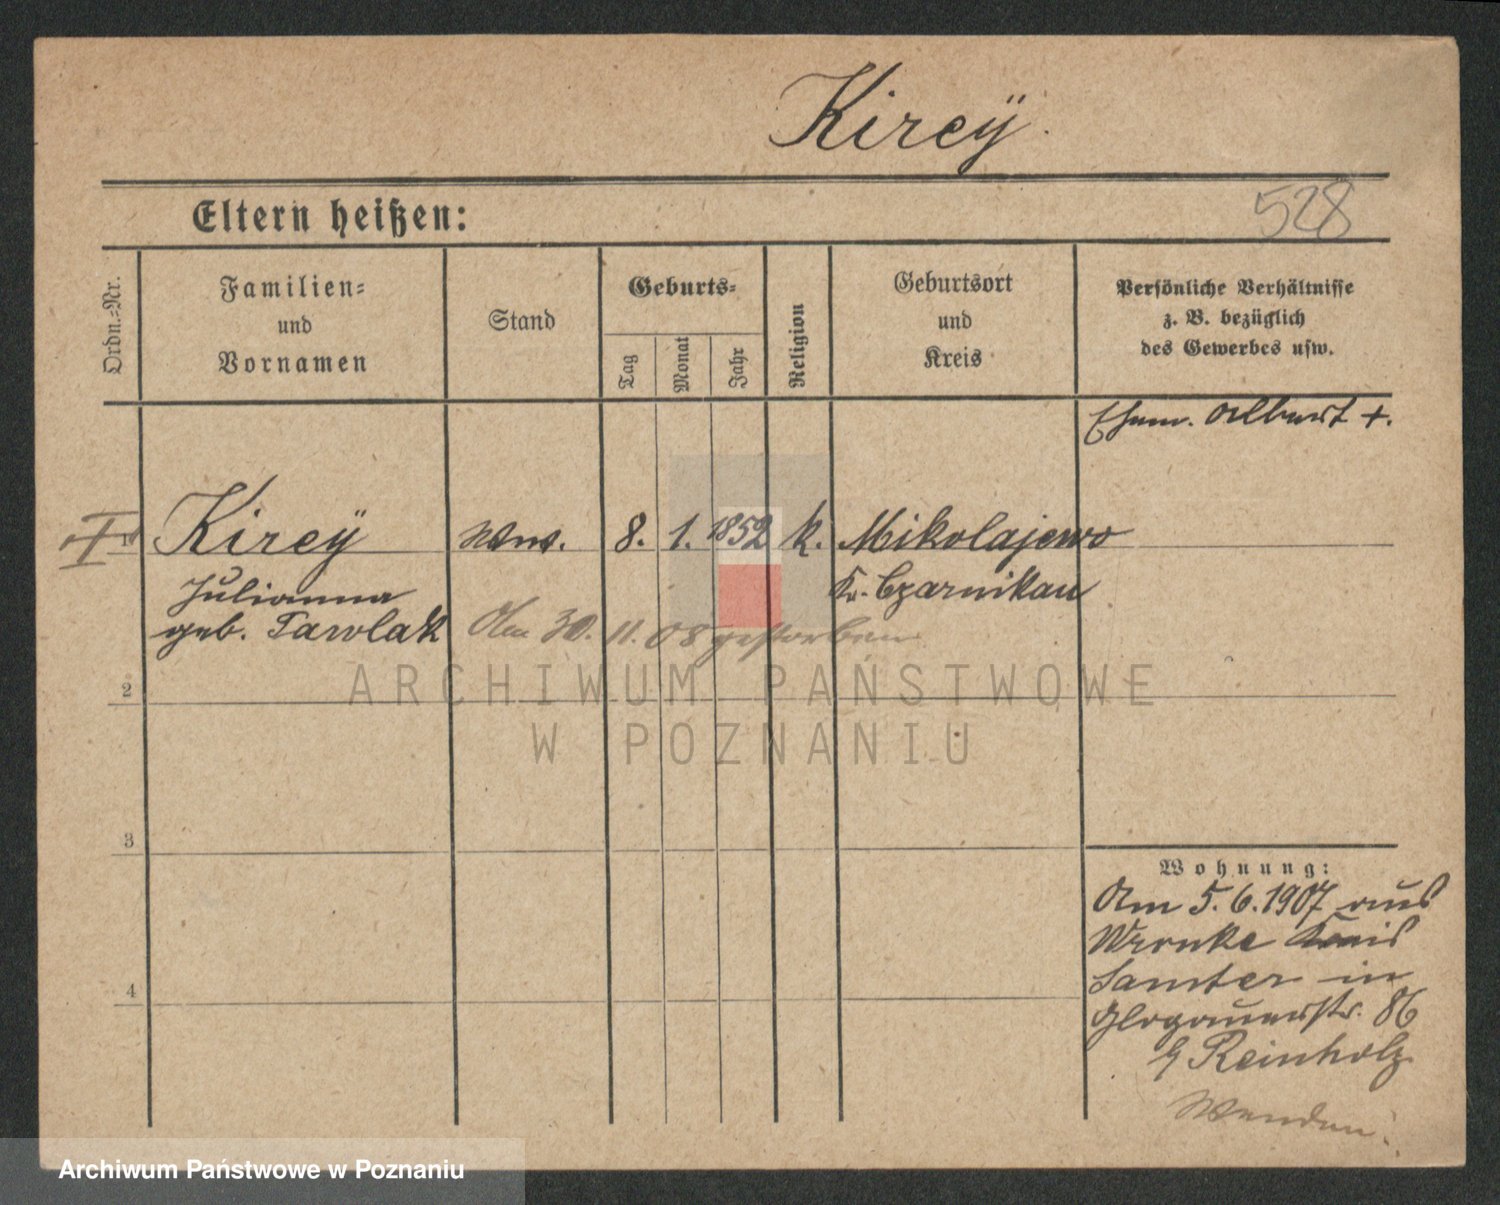 Kireÿ.
Eltern heißen:
528
Ordn.=Nr.
Familien=
und
Vornamen
Stand
Geburts=
Tag
Monat
Jahr
Religion
Geburtsort
und
Kreis
Persönliche Verhältnisse
z. B. bezüglich
des Gewerbes usw.
Ehem. Albert +.
1 Kireÿ Wwe. 8. 1. 1852 k. Mikolajewo
Julianna Kr. Czarnikau
geb. Pawlak Am 30. 11. 08 gestorben
ARCHIWUM PAŃSTWOWE
W POZNANIU
2
3
4
Wohnung:
Am 5. 6. 1907 aus
Wronke Kreis
Samter in
Glogauerstr. 86
b/ Reinholz
Wenden.
Archiwum Państwowe w Poznaniu